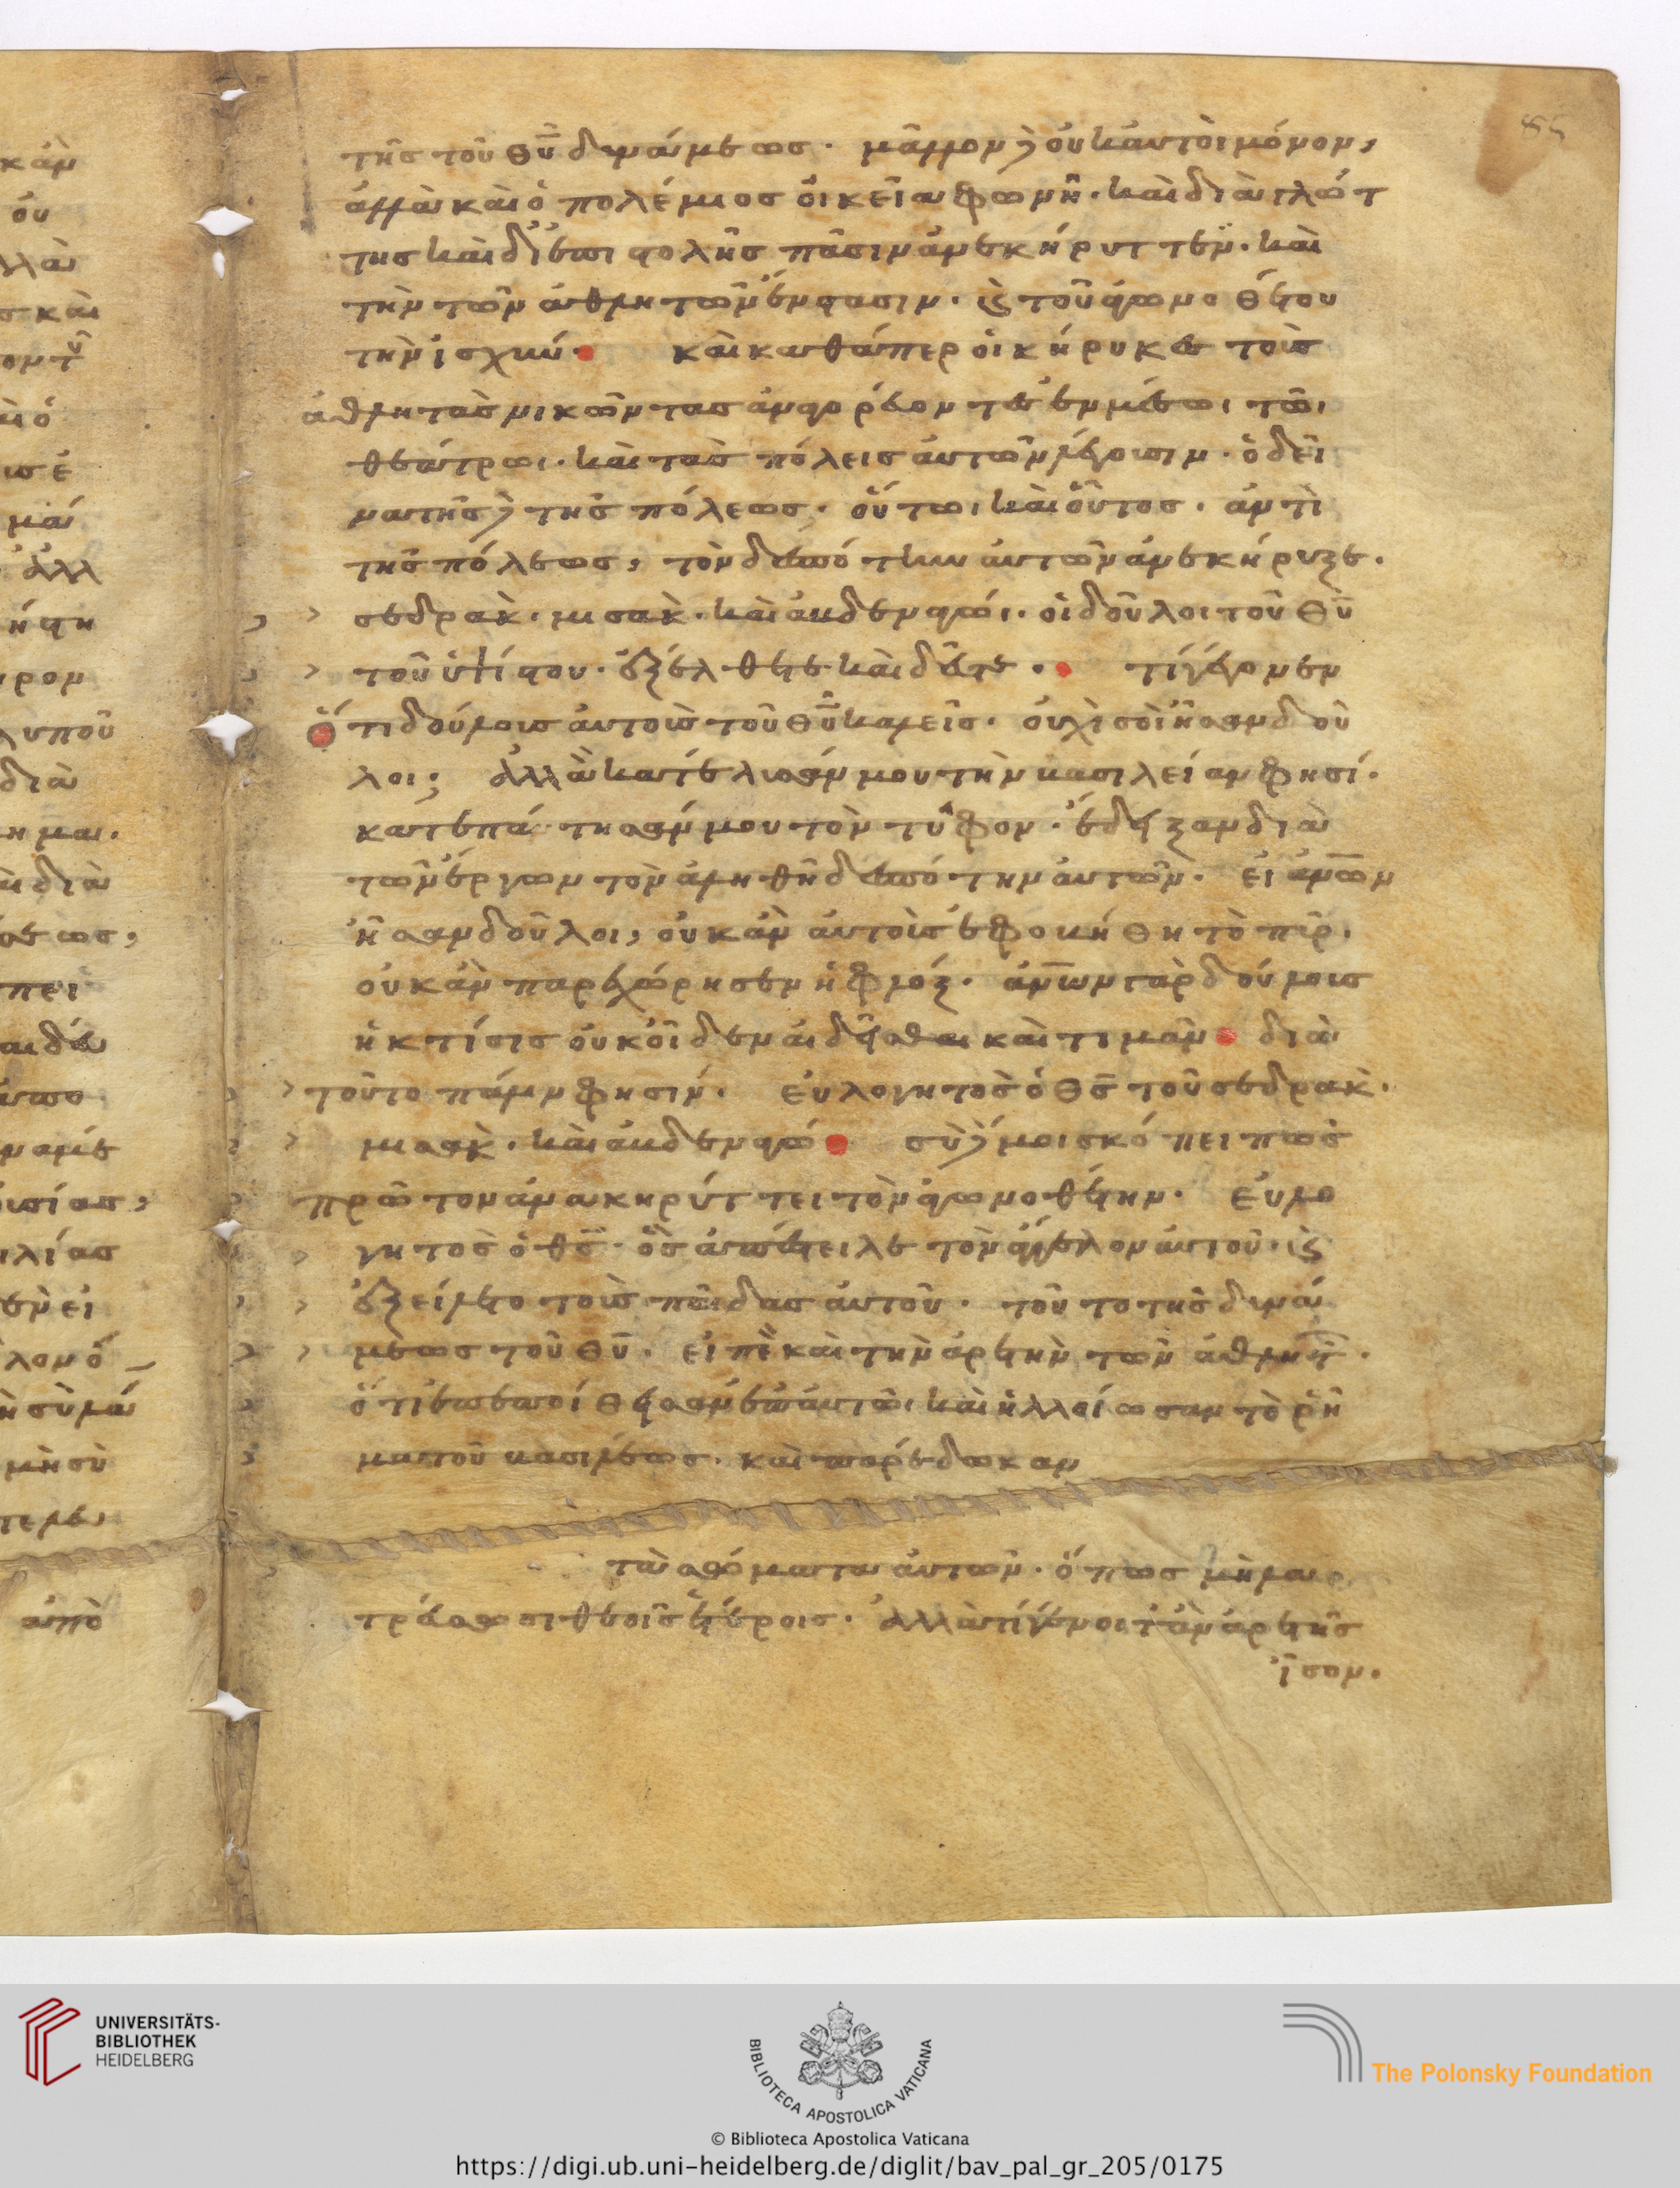 τῆς τοῦ θῡ δυνάμεως· μᾶλλον δὲ οὐκ αὐτοὶ μόνον,
ἀλλὰ καὶ ὁ πολέμιος οἰκεία φωνῆ· καὶ διὰ γλώτ
της καὶ δι' ἐπιστολῆς πᾶσιν ἀνεκήρυττεν· καὶ
τὴν τῶν ἀθλητῶν ἔνστασιν· κ(αὶ) τοῦ ἀγωνοθέτου
τὴν ἰσχύν· καὶ καθάπερ οἱ κήρυκες τοὺς
ἀθλητὰς νικῶντας ἀναγορεύοντες ἐν μέσωι τῶι
θεάτρωι· καὶ τὰς πόλεις αὐτῶν λέγουσιν· ὁ δεῖ
να τῆς δὲ τῆς πόλεως· οὕτωι καὶ οὗτος· ἀντὶ
τῆς πόλεως, τὸν δεσπότην αὐτῶν ἀνεκήρυξε·
σεδρὰκ· μισὰκ· καὶ ἀβδεναγώι· οἱ δοῦλοι τοῦ θῡ
τοῦ ὑψίστου· ἐξέλθετε καὶ δεῦτε· τί γέγονεν
ὅτι δούλους αὐτοὺς τοῦ θῡ καλεῖς· οὐχὶ σοὶ ἦσαν δοῦ
λοι; ἀλλὰ κατέλυσάν μου τὴν βασιλείαν φησί·
κατεπάτησάν μου τὸν τῦφον· ἔδειξαν διὰ
τῶν ἔργων τὸν ἀληθῆ δεσπότην αὐτῶν· εἰ ἀνῶν
ἦσαν δοῦλοι, οὐκ ἂν αὐτοὺς ἐφοβήθη τὸ πῦρ·
οὐκ ἂν παρεχώρησεν ἡ φλόξ· ἀνων γὰρ δούλους
ἡ κτίσις οὐκ οἶδεν αἰδεῖσθαι καὶ τιμᾶν· διὰ
τοῦτο πάλιν φησίν· εὐλογητὸς ὁ θς̄ τοῦ σεδρὰκ·
μισὰκ· καὶ ἀβδεναγώ· σὺ δέ μοι σκόπει πῶς
πρῶτον ἀνακηρύττει τὸν ἀγωνοθέτην· εὐλο
γητὸς ὁ θς̄· ὃς ἀπέστειλε τὸν ἄγγελον αὐτοῦ· κ(αὶ)
ἐξείλετο τοὺς παῖδας αὐτοῦ· τοῦτο τῆς δυνά
μεως τοῦ θῡ· εἰπὲ καὶ τὴν ἀρετὴν τῶν ἀθλητ·
ὅτι ἐπεποίθεισαν ἐπ' αὐτῶι καὶ ἠλλοίωσαν τὸ ῥῆ
μα τοῦ βασιλέως· καὶ παρέδωκαν
τὰ σώματα αὐτῶν· ὅπως μὴ λα
τρεύσωσι θεοῖς ἑτέροις· ἀλλὰ τί γένοιτ' ἂν ἀρετῆς
ἴσον·
UNIVERSITÄTS-
BIBLIOTHEK
HEIDELBERG
BIBLIOTECA APOSTOLICA VATICANA
The Polonsky Foundation
© Biblioteca Apostolica Vaticana
https://digi.ub.uni-heidelberg.de/diglit/bav_pal_gr_205/0175